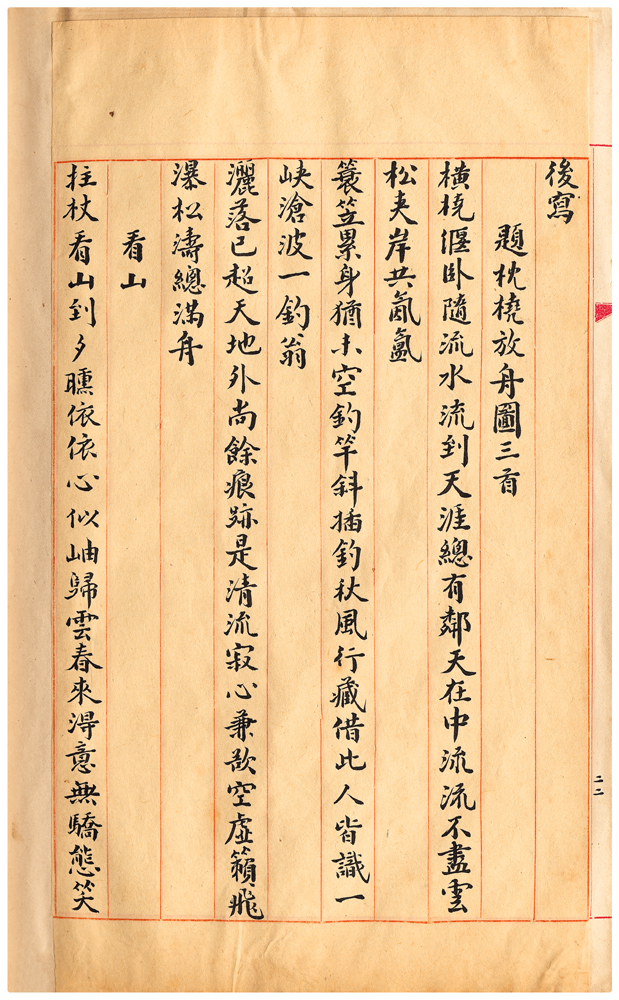 後寫
題枕橈放舟圖三首
橫橈偃臥隨流水流到天涯總有鄰天在中流流不盡雲
松夾岸共氤氳
簑笠累身猶未空釣竿斜插釣秋風行藏借此人皆識一
峽滄波一釣翁
灑落已超天地外尚餘痕跡是清流寂心兼欲空虛籟飛
瀑松濤總滿舟
看山
拄杖看山到夕曛依依心似岫歸雲春來得意無驕態笑
二二